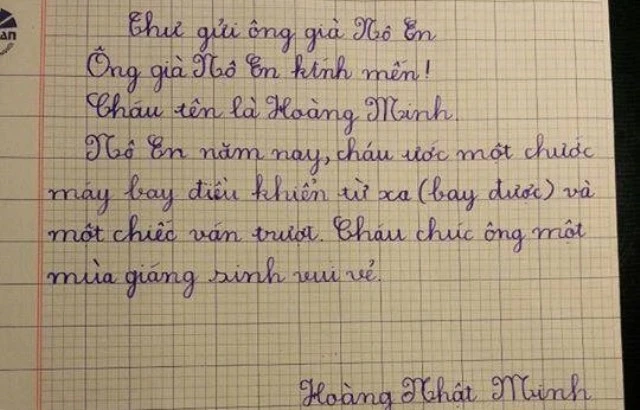 Thư gửi ông già Nô En
Ông già Nô En kính mến!
Cháu tên là Hoàng Minh.
Nô En năm nay, cháu ước một chước
máy bay điều khiển từ xa (bay được) và
một chiếc ván trượt. Cháu chúc ông một
mùa giáng sinh vui vẻ.
Hoàng Nhật Minh